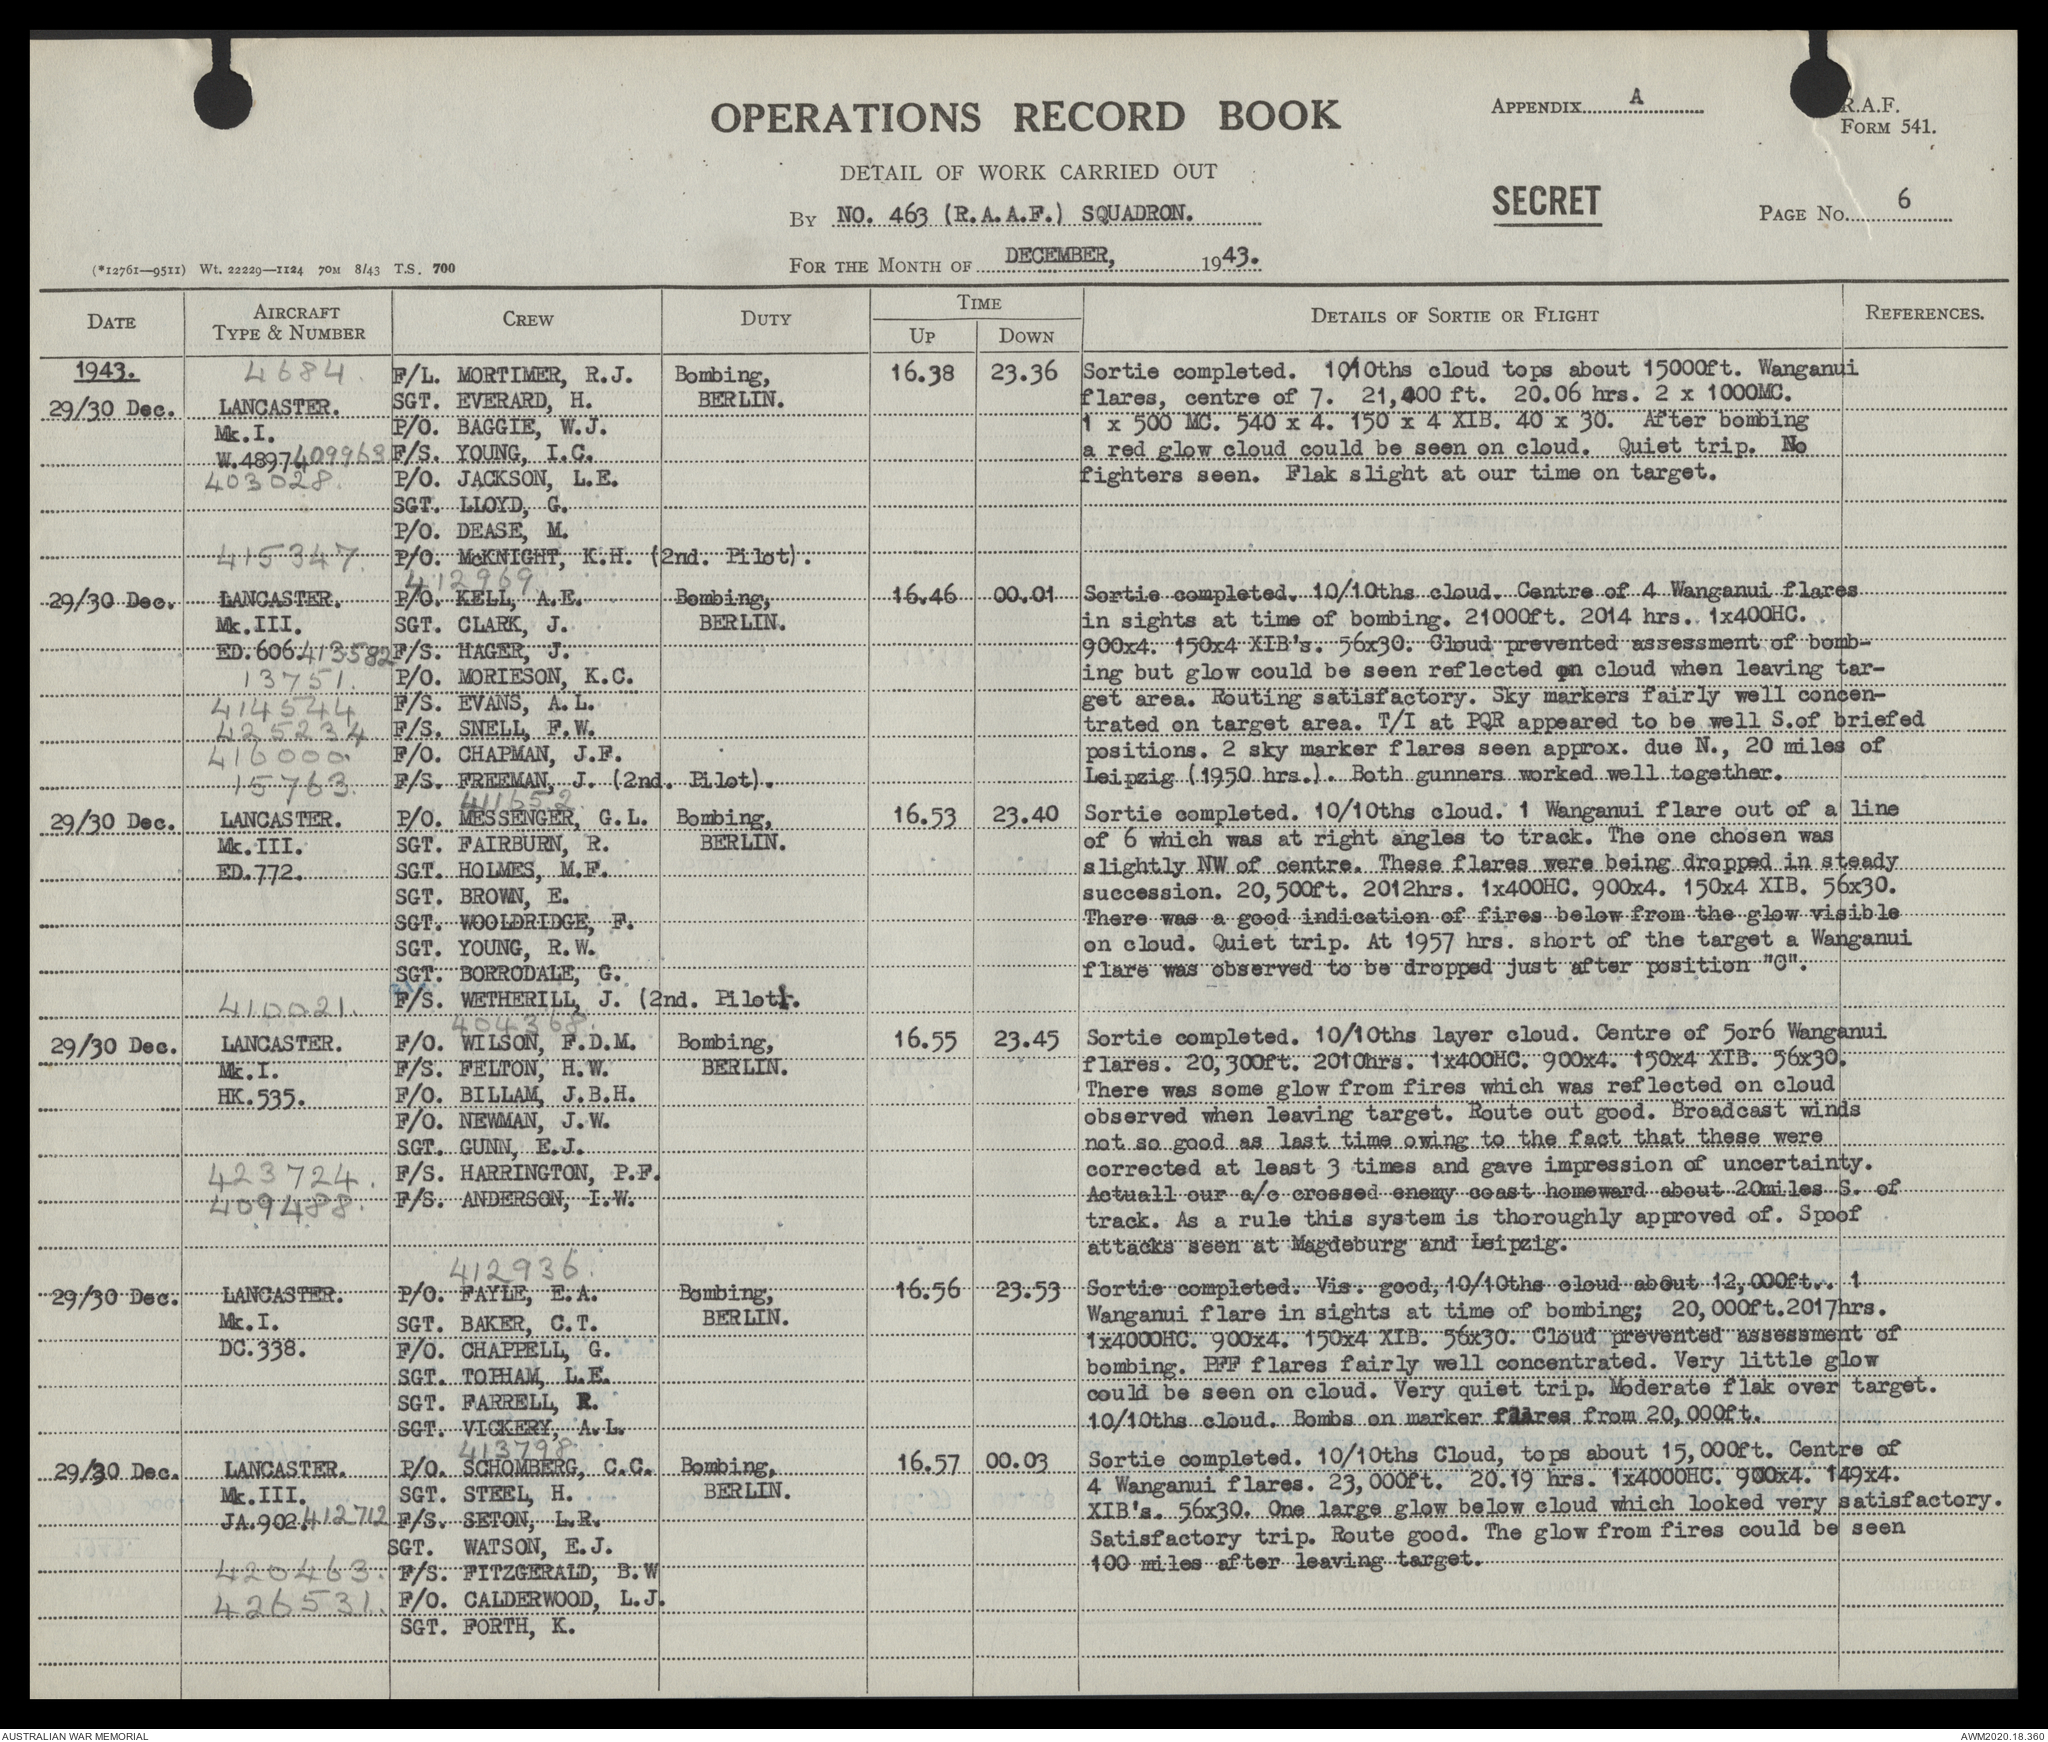 OPERATIONS RECORD BOOK
APPENDIX A
R.A.F.
FORM 541.
DETAIL OF WORK CARRIED OUT
SECRET
BY NO. 463 (R.A.A.F.) SQUADRON.
PAGE No. 6
FOR THE MONTH OF DECEMBER, 1943.
(*12761—9511) Wt. 22229—1124 70M 8/43 T.S. 700
DATE
AIRCRAFT TYPE & NUMBER
CREW
DUTY
TIME
UP
DOWN
DETAILS OF SORTIE OR FLIGHT
REFERENCES.
1943.
29/30 Dec.
4684.
LANCASTER.
Mk.I.
W.4897 409963
403028.
415347.
F/L. MORTIMER, R.J.
SGT. EVERARD, H.
P/O. BAGGIE, W.J.
F/S. YOUNG, I.C.
P/O. JACKSON, L.E.
SGT. LLOYD, G.
P/O. DEASE, M.
P/O. McKNIGHT, K.H. (2nd. Pilot).
Bombing,
BERLIN.
16.38
23.36
Sortie completed. 10/10ths cloud tops about 15000ft. Wanganui
flares, centre of 7. 21,400 ft. 20.06 hrs. 2 x 1000MC.
1 x 500 MC. 540 x 4. 150 x 4 XIB. 40 x 30. After bombing
a red glow cloud could be seen on cloud. Quiet trip. No
fighters seen. Flak slight at our time on target.
29/30 Dec.
LANCASTER.
Mk.III.
ED.606. 413582
13751.
414544
425234
416000.
15763.
412969
P/O. KELL, A.E.
SGT. CLARK, J.
F/S. HAGER, J.
P/O. MORIESON, K.C.
F/S. EVANS, A.L.
F/S. SNELL, F.W.
F/O. CHAPMAN, J.F.
F/S. FREEMAN, J. (2nd. Pilot).
Bombing,
BERLIN.
16.46
00.01
Sortie completed. 10/10ths cloud. Centre of 4 Wanganui flares
in sights at time of bombing. 21000ft. 2014 hrs. 1x400HC.
900x4. 150x4 XIB's. 56x30. Cloud prevented assessment of bomb-
ing but glow could be seen reflected on cloud when leaving tar-
get area. Routing satisfactory. Sky markers fairly well concen-
trated on target area. T/I at PQR appeared to be well S.of briefed
positions. 2 sky marker flares seen approx. due N., 20 miles of
Leipzig (1950 hrs.). Both gunners worked well together.
29/30 Dec.
LANCASTER.
Mk.III.
ED.772.
410021.
411652
P/O. MESSENGER, G.L.
SGT. FAIRBURN, R.
SGT. HOLMES, M.F.
SGT. BROWN, E.
SGT. WOOLDRIDGE, F.
SGT. YOUNG, R.W.
SGT. BORRODALE, G.
F/S. WETHERILL, J. (2nd. Pilot).
Bombing,
BERLIN.
16.53
23.40
Sortie completed. 10/10ths cloud. 1 Wanganui flare out of a line
of 6 which was at right angles to track. The one chosen was
slightly NW of centre. These flares were being dropped in steady
succession. 20,500ft. 2012hrs. 1x400HC. 900x4. 150x4 XIB. 56x30.
There was a good indication of fires below from the glow visible
on cloud. Quiet trip. At 1957 hrs. short of the target a Wanganui
flare was observed to be dropped just after position "C".
29/30 Dec.
LANCASTER.
Mk.I.
HK.535.
423724.
409488.
404368.
F/O. WILSON, F.D.M.
F/S. FELTON, H.W.
F/O. BILLAM, J.B.H.
F/O. NEWMAN, J.W.
SGT. GUNN, E.J.
F/S. HARRINGTON, P.F.
F/S. ANDERSON, I.W.
Bombing,
BERLIN.
16.55
23.45
Sortie completed. 10/10ths layer cloud. Centre of 5or6 Wanganui
flares. 20,300ft. 2010hrs. 1x400HC. 900x4. 150x4 XIB. 56x30.
There was some glow from fires which was reflected on cloud
observed when leaving target. Route out good. Broadcast winds
not so good as last time owing to the fact that these were
corrected at least 3 times and gave impression of uncertainty.
Actuall our a/c crossed enemy coast homeward about 20miles S. of
track. As a rule this system is thoroughly approved of. Spoof
attacks seen at Magdeburg and Leipzig.
29/30 Dec.
LANCASTER.
Mk.I.
DC.338.
412936.
P/O. FAYLE, E.A.
SGT. BAKER, C.T.
F/O. CHAPPELL, G.
SGT. TOPHAM, L.E.
SGT. FARRELL, R.
SGT. VICKERY, A.L.
Bombing,
BERLIN.
16.56
23.53
Sortie completed. Vis. good, 10/10ths cloud about 12,000ft.. 1
Wanganui flare in sights at time of bombing; 20,000ft.2017hrs.
1x4000HC. 900x4. 150x4 XIB. 56x30. Cloud prevented assessment of
bombing. PFF flares fairly well concentrated. Very little glow
could be seen on cloud. Very quiet trip. Moderate flak over target.
10/10ths cloud. Bombs on marker flares from 20,000ft.
29/30 Dec.
LANCASTER.
Mk.III.
JA.902. 412712
420463.
426531.
413798.
P/O. SCHOMBERG, C.C.
SGT. STEEL, H.
F/S. SETON, L.R.
SGT. WATSON, E.J.
F/S. FITZGERALD, B.W
F/O. CALDERWOOD, L.J.
SGT. FORTH, K.
Bombing,
BERLIN.
16.57
00.03
Sortie completed. 10/10ths Cloud, tops about 15,000ft. Centre of
4 Wanganui flares. 23,000ft. 20.19 hrs. 1x4000HC. 900x4. 149x4.
XIB's. 56x30. One large glow below cloud which looked very satisfactory.
Satisfactory trip. Route good. The glow from fires could be seen
100 miles after leaving target.
AUSTRALIAN WAR MEMORIAL
AWM2020.18.360